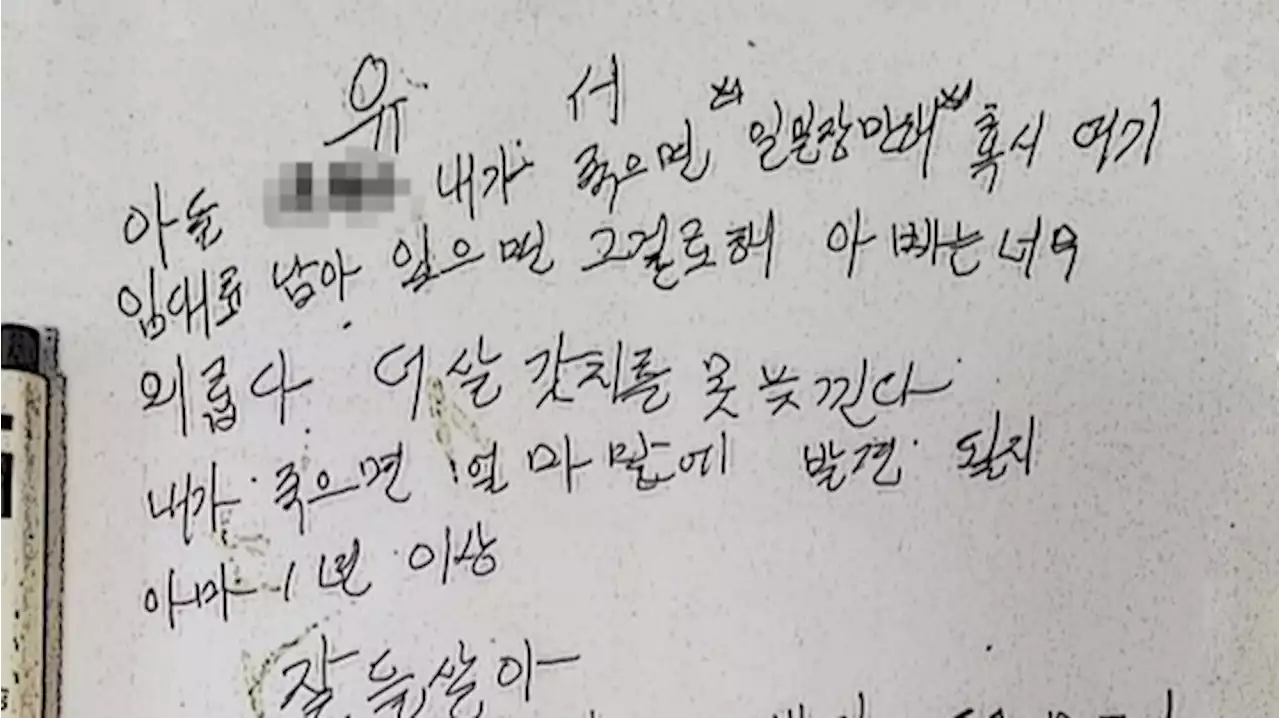 유 서
아들 내가 죽으면 "일본장만해" 혹시 여기
임대료 남아 있으면 그걸로해 아빠는너무
외롭다 더살 갓치를 못늣낀다
내가 죽으면 얼마맘에 발견 될지
아마 1년 이상
잘들살아